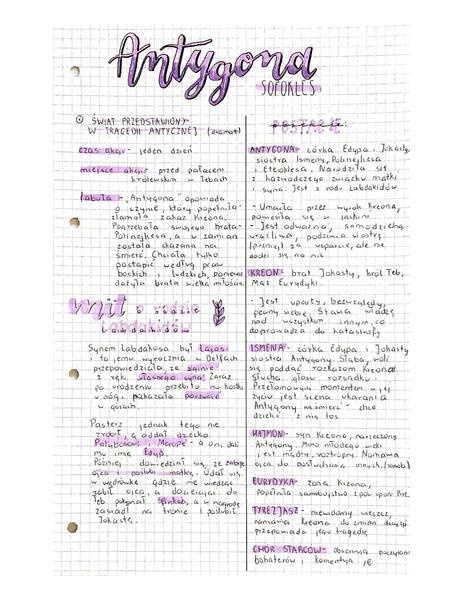 Antygona
SOFOKLES
ŚWIAT PRZEDSTAWIONY
W TRAGEDII ANTYCZNEJ (dramat)
czas akcji - jeden dzień
miejsce akcji - przed pałacem
królewskim w Tebach
fabuła - „Antygona” opowiada
o czynie, który popełniła-
złamała zakaz Kreona.
Pogrzebała swojego brata-
Polinejkesa, a w zamian
została skazana na
śmierć. Chciała tylko
postąpić według praw
boskich i ludzkich, ponieważ
darzyła brata wielką miłością.
mit o rodzie
Labdakidów
Synem Labdakosa był Lajos
i to jemu wyrocznia w Delfach
przepowiedziała, że zginie
z ręki własnego syna. Zaraz
po urodzeniu przebito mu kostki
u nóg i pokazała porzucić
w górach.
Pasterz jednak tego nie
zrobił a oddał dziecko
Polybosowi i Merope. a oni dali
mu imię Edyp.
Później dowiedział się, że zabije
ojca i poślubi matkę. Udał się
w wędrówkę gdzie nie wiedząc
zabił ojca, a docierając do
Teb pokonał Sfinksa, a w nagrodę
zasiadł na tronie i poślubił
Jokastę.
POSTACIE
ANTYGONA - córka Edypa i Jokasty,
siostra Ismeny, Polinejkesa
i Eteoklesa. Narodziła się
z kazirodczego związku matki
i syna. Jest z rodu Labdakidów
- Umarła przez wyrok Kreona,
powiesiła się w jaskini
- Jest odważna, samodzielna
wrażliwa, podziwia siostrę
za wsparcie, ale nie
godzi się na nie
KREON - brat Jokasty, król Teb,
Mąż Eurydyki
- Jest uparty, bezwzględny,
pewny siebie. Stawia władzę
nad wszystkim innym, co
doprowadza do katastrofy
ISMENA - córka Edypa i Jokasty
siostra Antygony. Słaba, woli
się poddać rozkazom Kreona.
Słucha głosu rozsądku.
Przełomowym momentem w jej
życiu jest scena skazania
Antygony na śmierć - chce
dzielić z nią los
HAJMON - syn Kreona, narzeczony
Antygony. Mimo młodego wieku
jest mądry, roztropny. Namawia
ojca do posłuchania innych.
EURYDYKA - żona Kreona,
Popełnia samobójstwo
TYREZJASZ - niewidomy wieszcz,
namawia Kreona do zmian decyzji
przepowiada jego tragedię
CHÓR STARCÓW - obserwują poczynania
bohaterów i komentują je